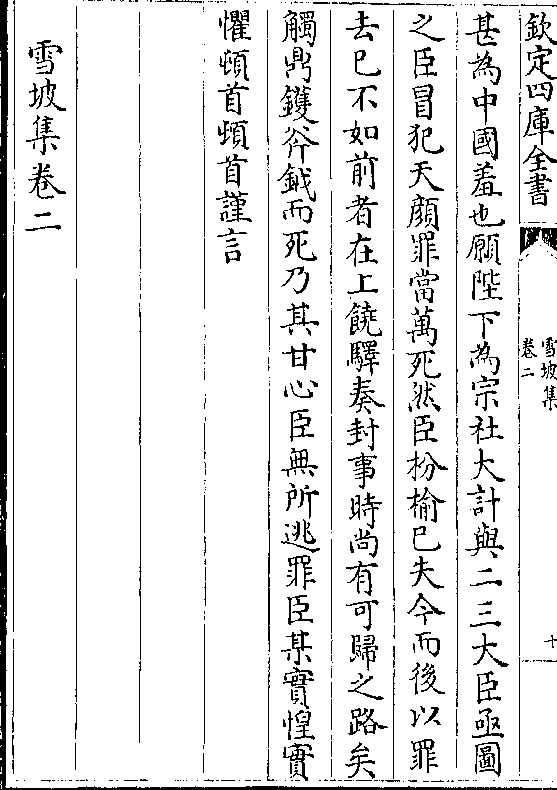 欽定四庫全書
雪坡集
卷二
十
甚為中國羞也願陛下為宗社大計與二三大臣亟圖
之臣冒犯天顔罪當萬死然臣枌榆已失今而後以罪
去已不如前者在上饒驛奏封事時尚有可歸之路矣
觸鼎鑊斧鉞而死乃其甘心臣無所逃罪臣某實惶實
懼頓首頓首謹言
雪坡集卷二